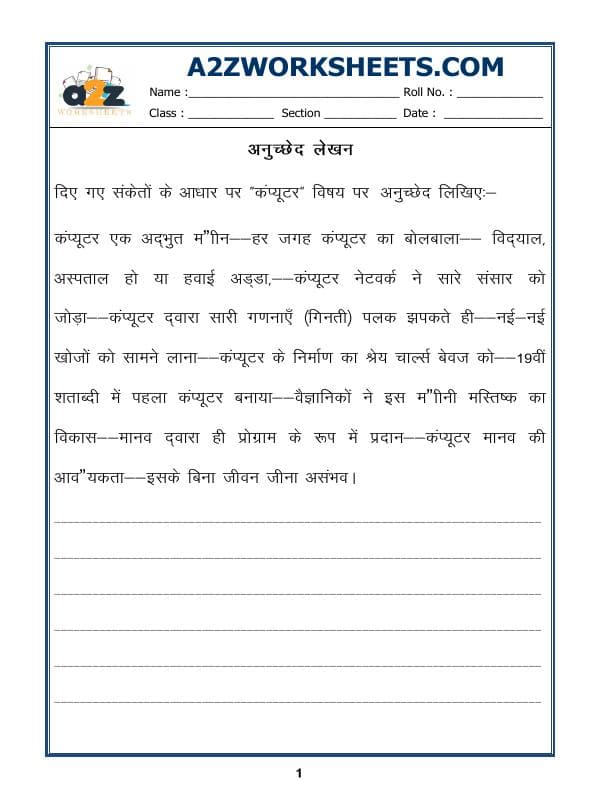 A2ZWORKSHEETS.COM
a2z
WORKSHEETS
Name :________________ Roll No. : ________
Class : ________ Section ________ Date : ________
अनुच्छेद लेखन
दिए गए संकेतों के आधार पर "कंप्यूटर" विषय पर अनुच्छेद लिखिए:–
कंप्यूटर एक अद्‌भुत म"ाीन––हर जगह कंप्यूटर का बोलबाला–– विद्‌याल,
अस्पताल हो या हवाई अड्‌डा,––कंप्यूटर नेटवर्क ने सारे संसार को
जोड़ा––कंप्यूटर द्‌वारा सारी गणनाएँ (गिनती) पलक झपकते ही––नई–नई
खोजों को सामने लाना––कंप्यूटर के निर्माण का श्रेय चार्ल्स बेवज को––19वीं
शताब्दी में पहला कंप्यूटर बनाया––वैज्ञानिकों ने इस म"ाीनी मस्तिष्क का
विकास––मानव द्‌वारा ही प्रोग्राम के रूप में प्रदान––कंप्यूटर मानव की
आव"यकता––इसके बिना जीवन जीना असंभव।
1